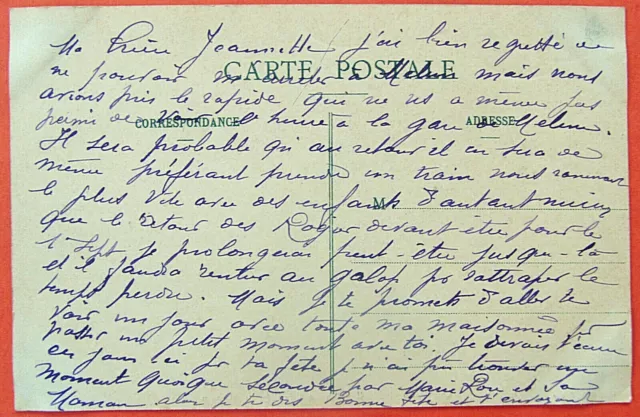 Ma Chère Jeannette j'ai bien regretté de
ne pouvoir m'arrêter à Melun mais nous
CARTE POSTALE
avions pris le rapide qui ne ns a même pas
permis de voir l'heure à la gare de Melun.
CORRESPONDANCE
ADRESSE
Il sera probable qu'au retour il en sera de
même préférant prendre un train nous ramenant
le plus vite avec des enfants d'autant mieux
M
que le retour des Roger devant être pour le
1er Sept je prolongerai peut-être jusque-là
et il faudra rentrer au galop pr rattraper le
temps perdu. Mais je te promets d'aller te
voir un jour avec toute ma maisonnée pr
passer un petit moment avec toi. Je devais t'écrire
en jans ici pr ta fête je n'ai pu trouver une
moment quoique secondée par Marie Rose et sa
Maman alors je te dis Bonne fête et t'envoyant